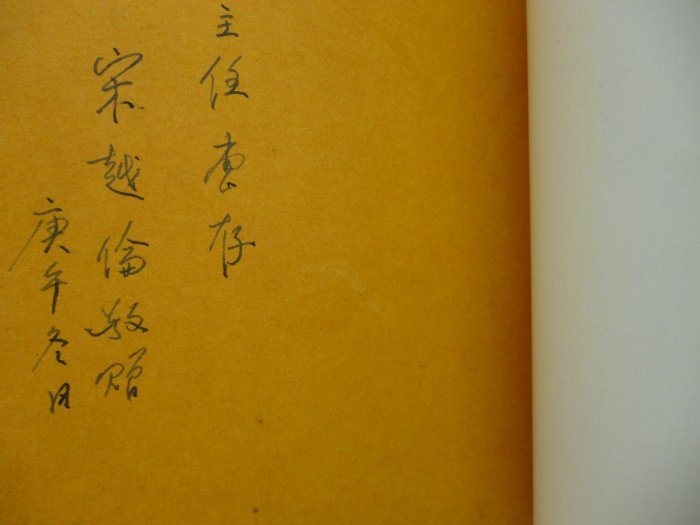 主任惠存
宋越倫敬贈
庚午冬日